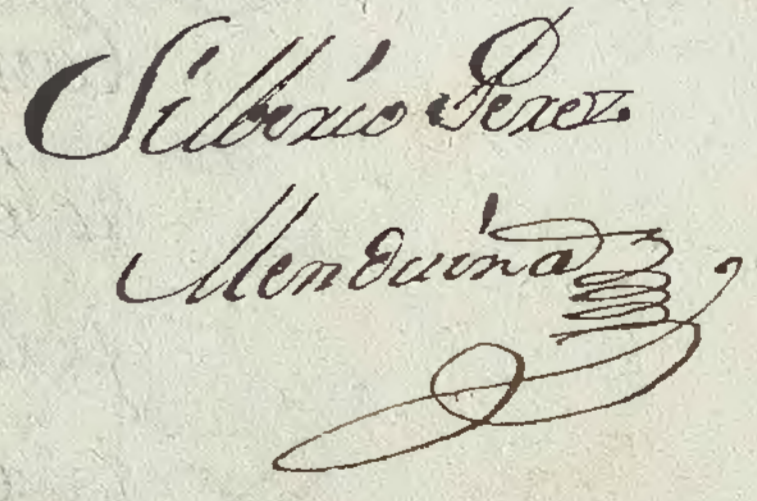 Silberio Perez.
Menduina